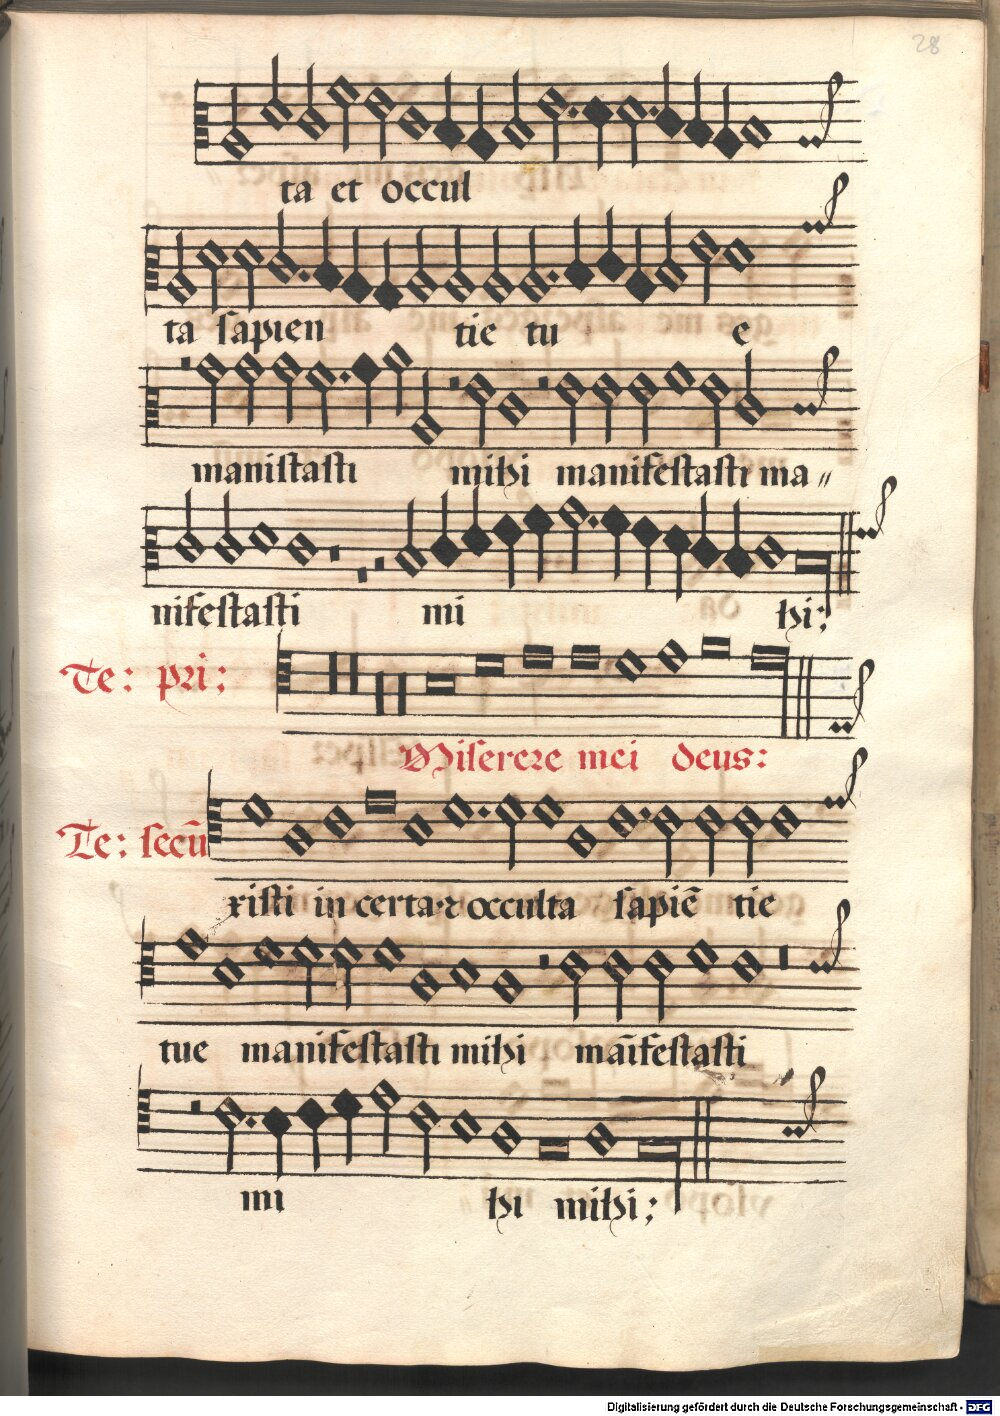 28
ta et occul
ta sapien tie tu e
manistasti mihi manifestasti ma〃
nifestasti mi hi:
Te: pri:
Miserere mei deus:
Te: secū
xisti in certa ⁊ occulta sapiē tie
tue manifestasti mihi māifestasti
mi hi mihi:
Digitalisierung gefördert durch die Deutsche Forschungsgemeinschaft - DFG